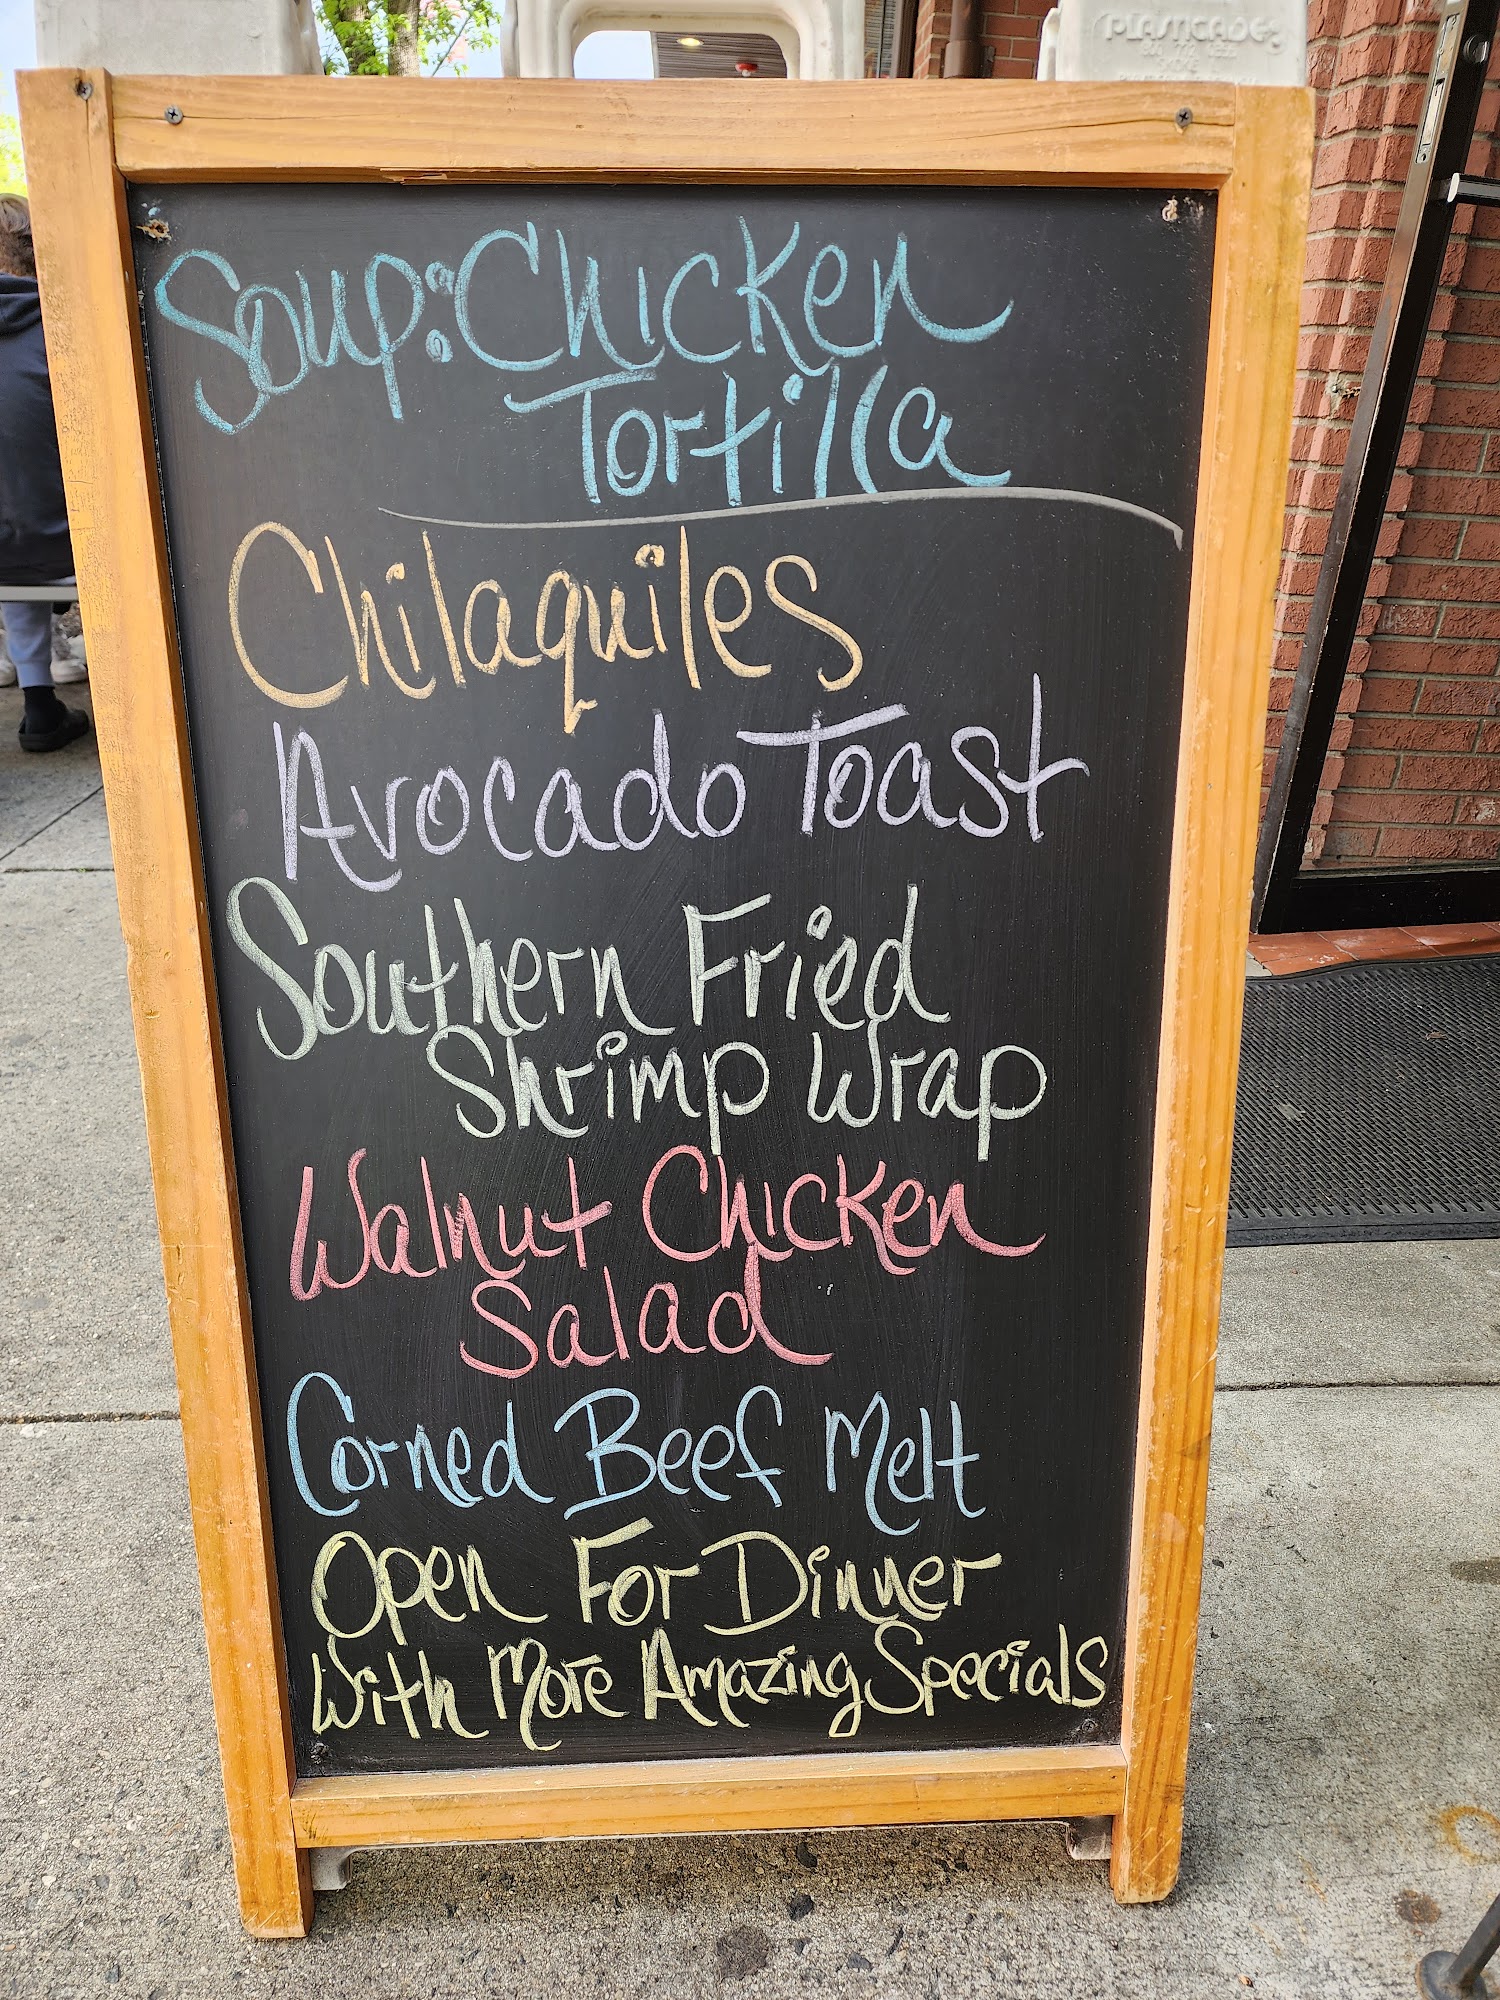 PLASTICADE
Soup: Chicken
Tortilla
Chilaquiles
Avocado Toast
Southern Fried
Shrimp Wrap
Walnut Chicken
Salad
Corned Beef Melt
Open For Dinner
With More Amazing Specials